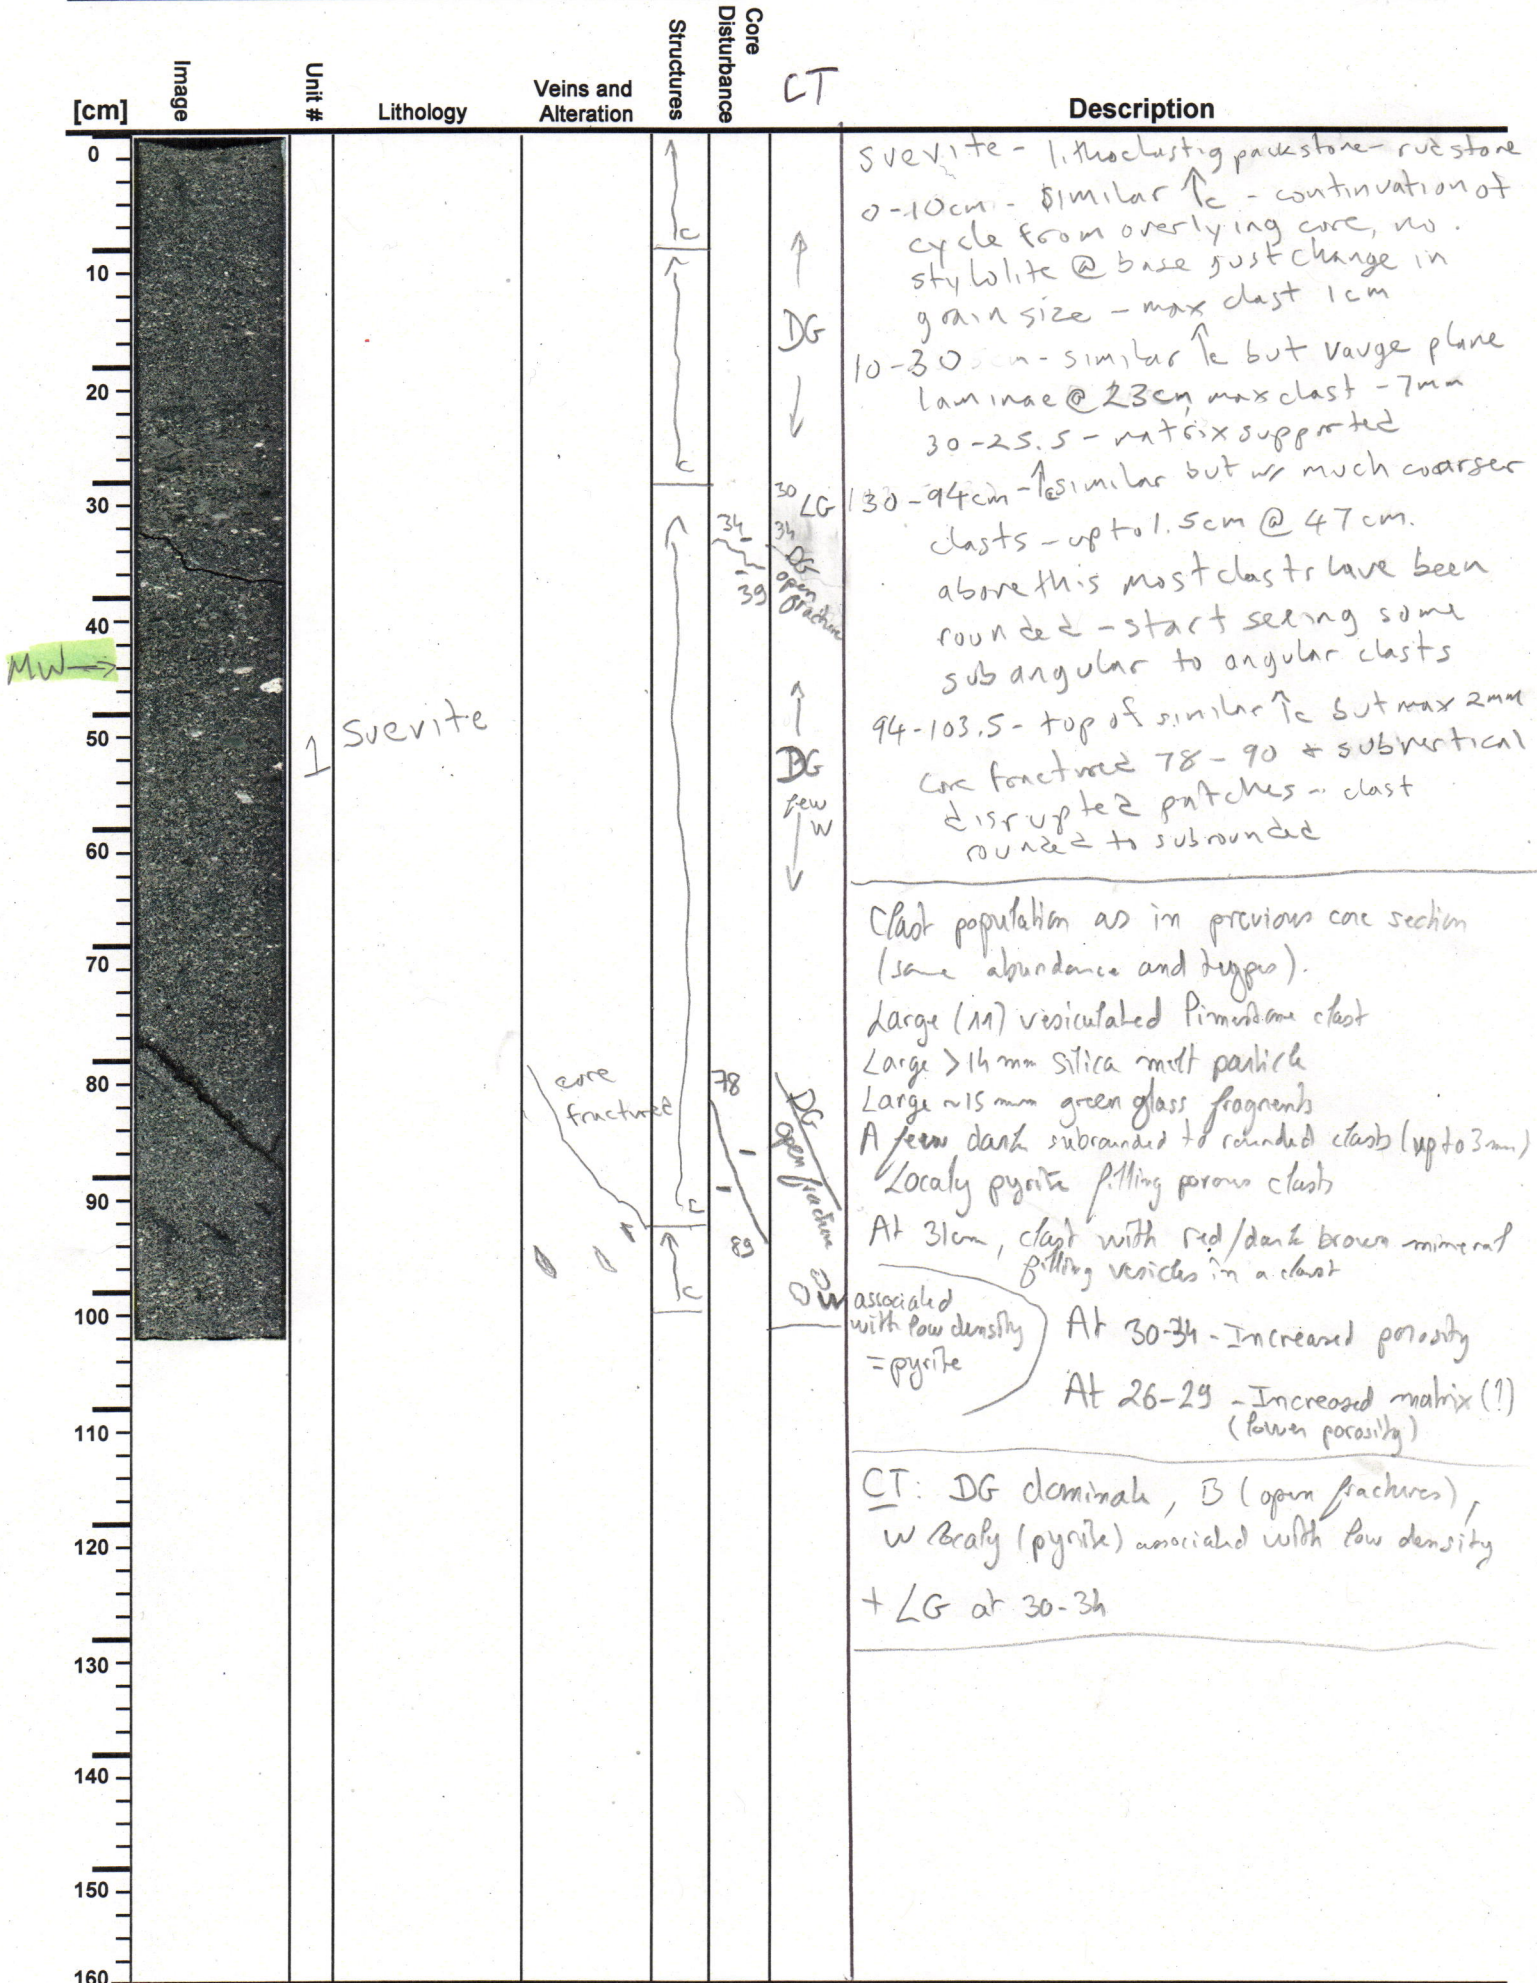 [cm]
Image
Unit #
Lithology
Veins and
Alteration
Structures
Core
Disturbance
CT
Description
0
10
20
30
40
50
60
70
80
90
100
110
120
130
140
150
160
MW→
1
Suevite
core
fractured
c
c
c
c
34
39
78
89
↑
DG
↓
30
LG
34
DG
open
fracture
↑
DG
few
W
↓
DG
open fracture
W
suevite - lithoclastic packstone - rudstone
0-10cm - similar ↑c - continuation of
cycle from overlying core, no
stylolite @ base just change in
grain size - max clast 1cm
10-30 cm - similar ↑c but vauge plane
laminae @ 23cm, max clast - 7mm
30-25.5 - matrix supported
30-94cm - ↑c similar but w/ much coarser
clasts - up to 1.5cm @ 47cm.
above this most clasts have been
rounded - start seeing some
subangular to angular clasts
94-103.5 - top of similar ↑c but max 2mm
core fractured 78-90 + subvertical
disrupted patches - clast
rounded to subrounded
Clast population as in previous core section
(same abundance and types).
Large (11) vesiculated limestone clast
Large >14 mm silica melt particle
Large ~15 mm green glass fragments
A few dark subrounded to rounded clasts (up to 3mm)
Localy pyrite filling porous clasts
At 31cm, clast with red/dark brown mineral
filling vesicles in a clast
associated
with low density
= pyrite
At 30-34 - Increased porosity
At 26-29 - Increased matrix (?)
(lower porosity)
CT: DG dominate, B (open fractures),
W localy (pyrite) associated with low density
+ LG at 30-34